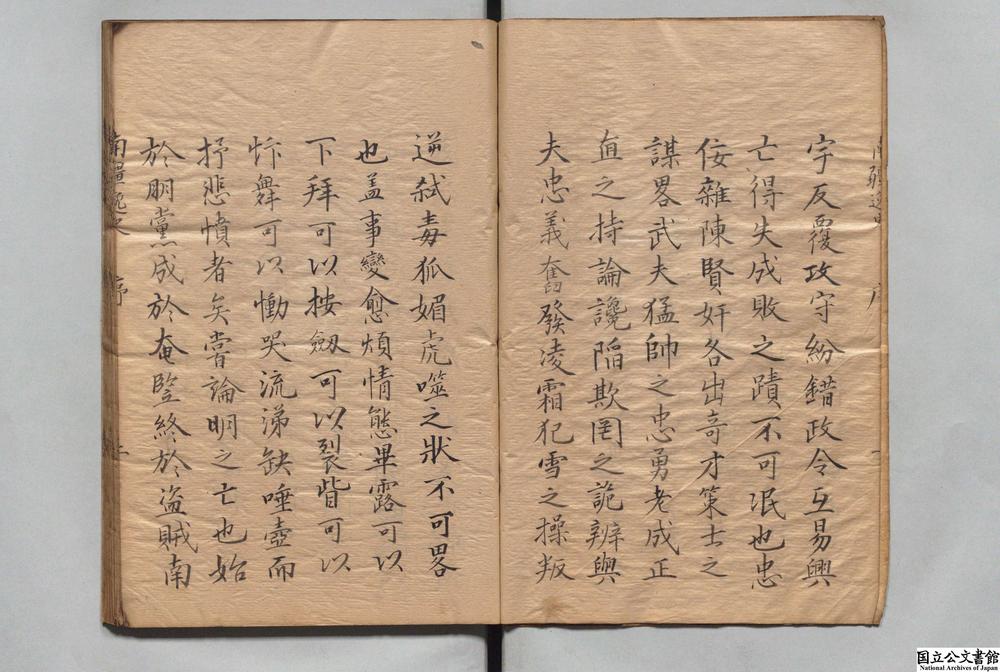 宇反覆攻守紛錯政令互易興
亡得失成敗之蹟不可泯也忠
佞雜陳賢奸各出奇才策士之
謀畧武夫猛帥之忠勇老成正
直之持論讒陷欺罔之詭辨與
夫忠義奮發凌霜犯雪之操叛
逆弑毒狐媚虎噬之狀不可畧
也盖事變愈煩情態畢露可以
下拜可以按劔可以裂眥可以
忭舞可以慟哭流涕缺唾壺而
抒悲憤者矣嘗論明之亡也始
於朋黨成於奄豎終於盜賊南
南疆逸史 序
国立公文書館
National Archives of Japan